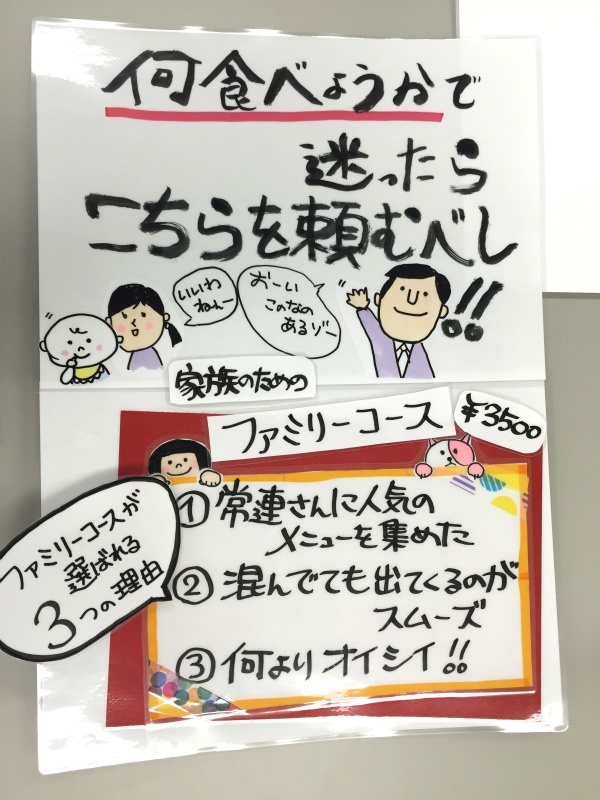 何食べようかで
迷ったら
こちらを頼むべし!!
いいわ
ねぇー
おーい
こんなの
あるゾー
家族のための
ファミリーコース
¥3500
ファミリーコースが
選ばれる
3つの理由
① 常連さんに人気の
メニューを集めた
② 混んでても出てくるのが
スムーズ
③ 何よりオイシイ!!